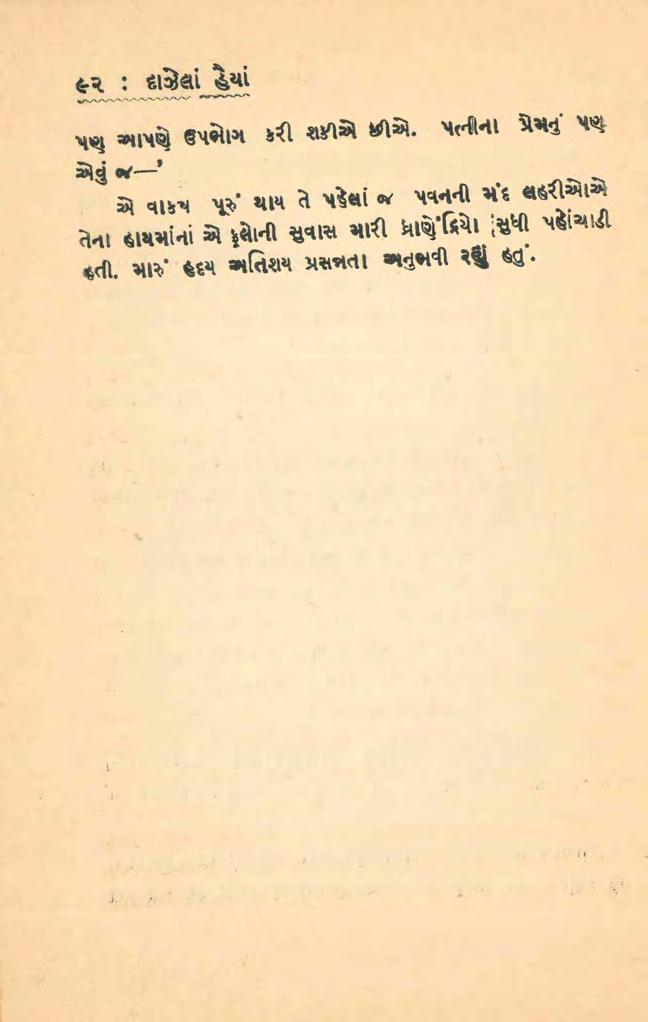 ૯૨ : દાઝેલાં હૈયાં
પણ આપણે ઉપભોગ કરી શકીએ છીએ. પત્નીના પ્રેમનું પણ
એવું જ—'
એ વાક્ય પૂરું થાય તે પહેલાં જ પવનની મંદ લહરીઓએ
તેના હાથમાંનાં એ ફૂલોની સુવાસ મારી ઘ્રાણેંદ્રિયો સુધી પહોંચાડી
હતી. મારું હૃદય અતિશય પ્રસન્નતા અનુભવી રહ્યું હતું.